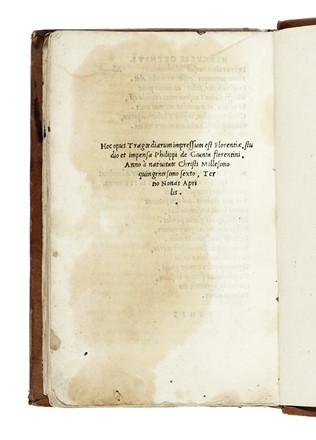 Hoc opus Tragœdiarum impressum est Florentiæ, stu
dio et impensa Philippi de Giunta florentini,
Anno à natiuitate Christi Millesimo
quingentesimo sexto, Ter
tio Nonas Apri
lis.